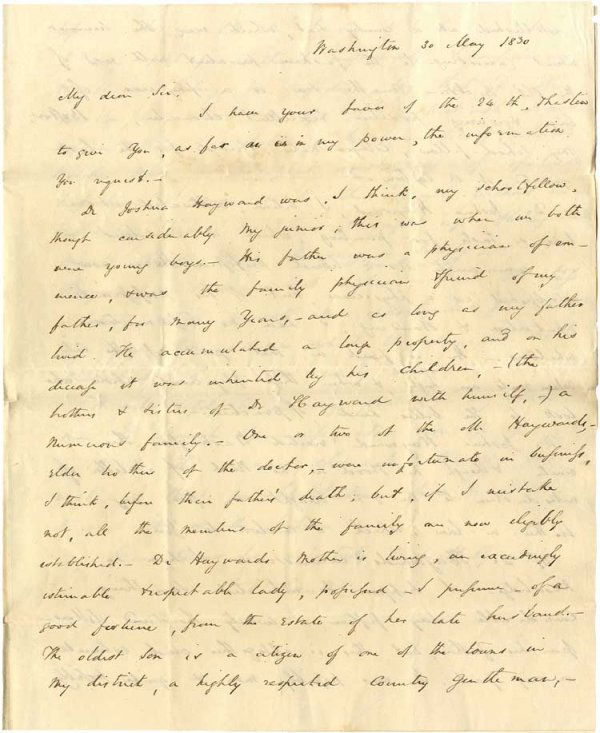 Washington 30 May 1830
My dear Sir.
I have your favor of the 24th, & hasten
to give You, as far as is in my power, the information
You request.—
Dr Joshua Hayward was, I think, my schoolfellow,
though considerably my junior; this was when we both
were young boys.— His father was a physician of em-
inence, & was the family physician & friend of my
father, for many Years,— and as long as my father
lived. He accumulated a large property, and on his
decease it was inherited by his children,— (the
brothers & sisters of Dr Hayward with himself,—) a
numerous family.— One or two of the Haywards,—
elder brothers of the doctor,— were unfortunate in business,
I think, before their father's death; but, if I mistake
not, all the members of the family are now eligibly
established.— Dr Haywards Mother is living, an exceedingly
estimable & respectable lady, possessed — I presume — of a
good fortune, from the Estate of her late husband.—
The oldest Son is a citizen of one of the towns in
my district, a highly respected Country Gentleman,—